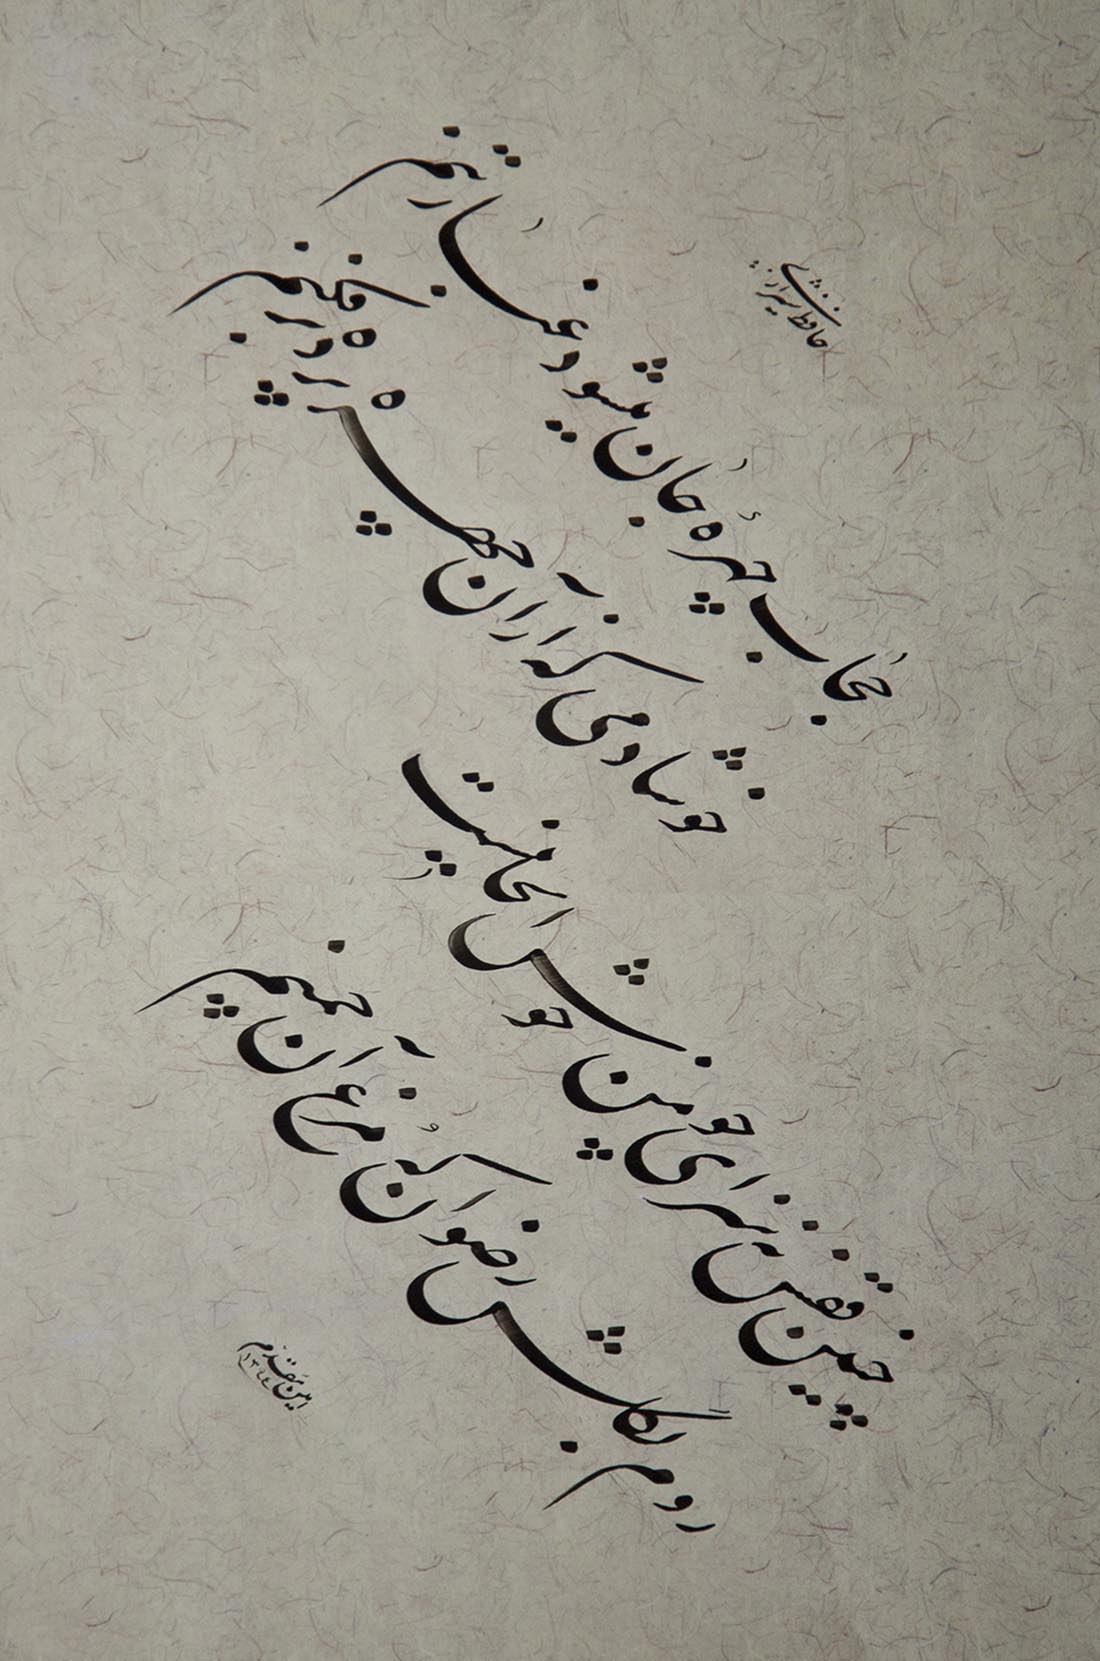 حافظ شیرازی
حجاب چهرهٔ جان میشود غبار تنم
خوشا دمی که از آن چهره پرده برفکنم
چنین قفس نه سزای چو من خوش الحانیست
روم بگلشن رضوان که مرغ آن چمنم
امین مقدم